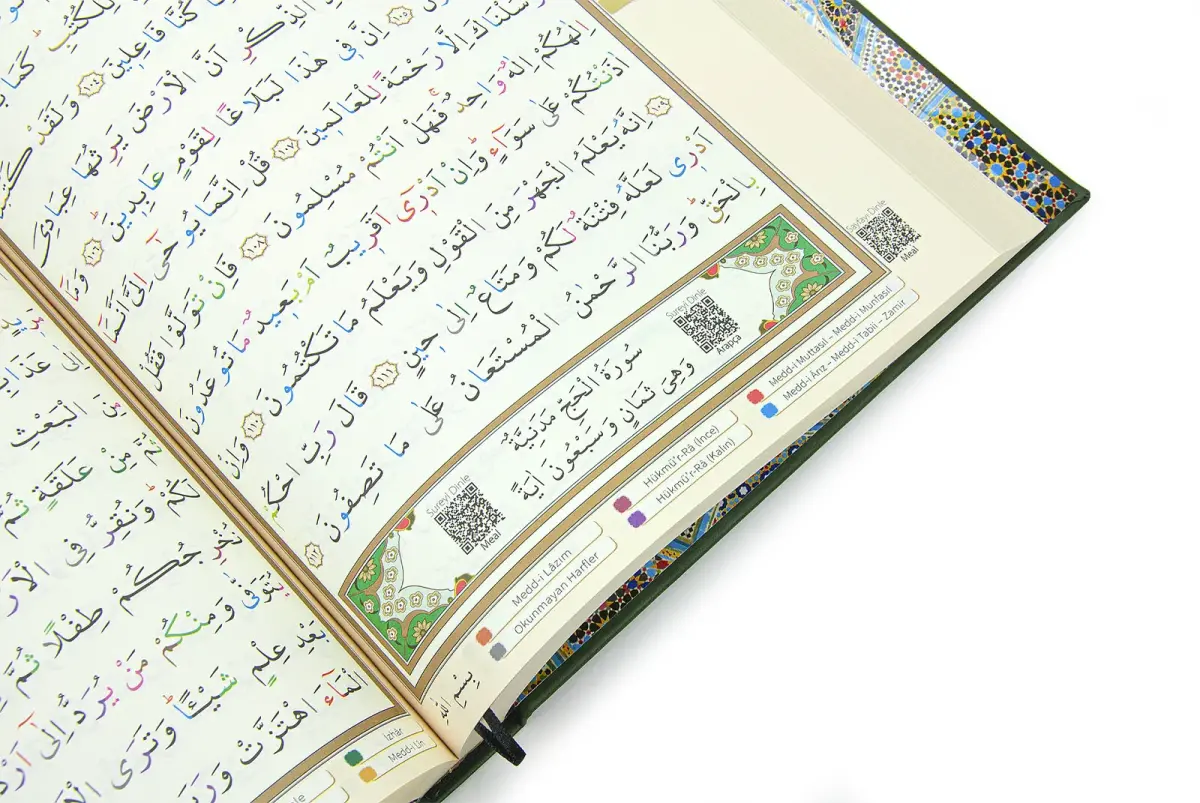 لِلْكُتُبِۜ كَمَا
كُنَّا فَاعِلِينَ ١٠٤ وَلَقَدْ
الذِّكْرِ اَنَّ الْاَرْضَ يَرِثُهَا عِبَادِيَ
١٠٥ اِنَّ فِي هٰذَا لَبَلَاغًا لِقَوْمٍ عَابِدِينَۜ ١٠٦ وَمَٓا
اِلَّا رَحْمَةً لِلْعَالَمِينَ ١٠٧ قُلْ اِنَّمَا يُوحٰٓى اِلَيَّ اَنَّمَٓا
اِلٰهُكُمْ اِلٰهٌ وَاحِدٌۚ فَهَلْ اَنْتُمْ مُسْلِمُونَ ١٠٨ فَاِنْ تَوَلَّوْا فَقُلْ
اٰذَنْتُكُمْ عَلٰى سَوَٓاءٍۜ وَاِنْ اَدْرِٓي اَقَرِيبٌ اَمْ بَعِيدٌ مَا تُوعَدُونَ
١٠٩ اِنَّهُ يَعْلَمُ الْجَهْرَ مِنَ الْقَوْلِ وَيَعْلَمُ مَا تَكْتُمُونَ ١١٠ وَاِنْ
اَدْرِي لَعَلَّهُ فِتْنَةٌ لَكُمْ وَمَتَاعٌ اِلٰى حِينٍ ١١١ قَالَ رَبِّ احْكُمْ
بِالْحَقِّۜ وَرَبُّنَا الرَّحْمٰنُ الْمُسْتَعَانُ عَلٰى مَا تَصِفُونَ ١١٢
Sureyi Dinle
Arapça
سُورَةُ الْحَجِّ مَدَنِيَّةٌ
وَهِيَ ثَمَانٍ وَسَبْعُونَ اٰيَةً
Sureyi Dinle
Meal
Sayfayı Dinle
Meal
Medd-i Muttasıl – Medd-i Munfasıl
Medd-i Ârız – Medd-i Tabii – Zamir
Hükmü'r-Râ (İnce)
Hükmü'r-Râ (Kalın)
Medd-i Lâzım
Okunmayan Harfler
بِسْمِ اللّٰهِ
الْبَعْثِ
ثُمَّ مِنْ عَلَقَةٍ ثُمَّ
لَكُمْۜ وَنُقِرُّ فِي
نُخْرِجُكُمْ طِفْلًا ثُمَّ
يُتَوَفّٰى وَمِنْكُمْ مَنْ يُرَدُّ اِلٰٓى
بَعْدِ عِلْمٍ شَيْـًٔاۜ وَتَرَى
الْمَٓاءَ اهْتَزَّتْ
İzhâr
Medd-i Lîn